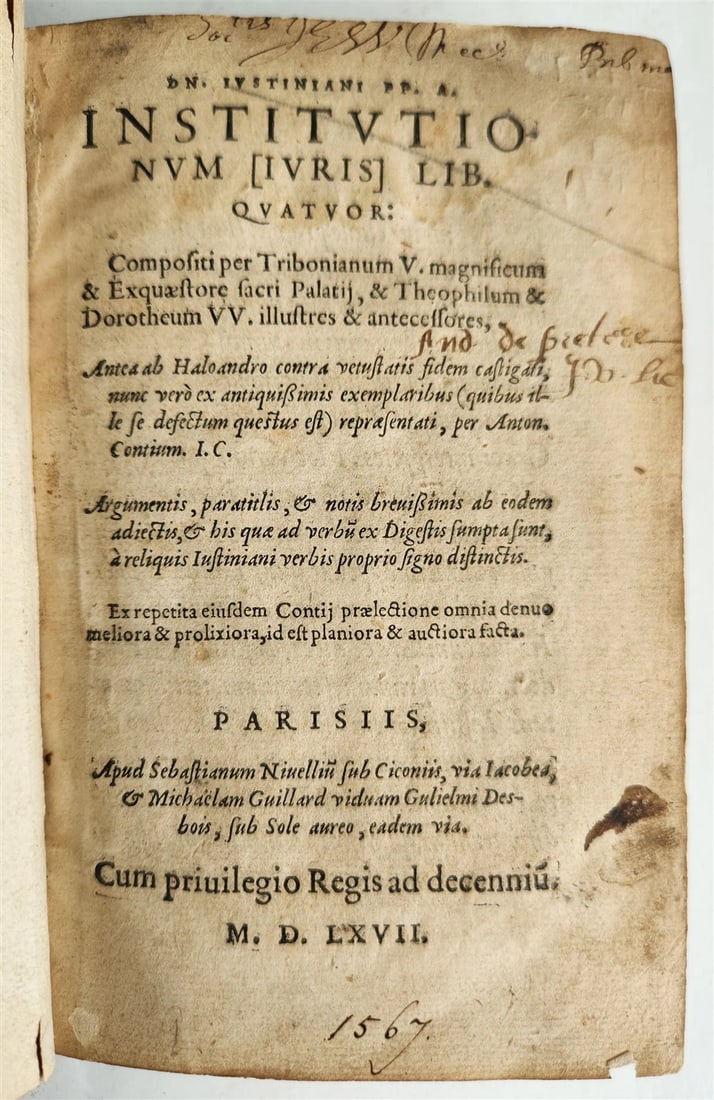 DN. IVSTINIANI PP. A.
INSTITVTIO
NVM [IVRIS] LIB.
QVATVOR:
Compositi per Tribonianum V. magnificum
& Exquæstore sacri Palatij, & Theophilum &
Dorotheum VV. illustres & antecessores,
And de
Antea ab Haloandro contra vetustatis fidem castigati,
nunc verò ex antiquißimis exemplaribus (quibus il-
le se defectum questus est) repræsentati, per Anton.
Contium. I. C.
Argumentis, paratitlis, & notis breuißimis ab eodem
adiectis, & his quæ ad verbũ ex Digestis sumpta sunt,
à reliquis Iustiniani verbis proprio signo distinctis.
Ex repetita eiusdem Contij prælectione omnia denuo
meliora & prolixiora, id est planiora & auctiora facta.
PARISIIS,
Apud Sebastianum Niuelliũ sub Ciconiis, via Iacobea,
& Michaëlam Guillard viduam Gulielmi Des-
bois, sub Sole aureo, eadem via.
Cum priuilegio Regis ad decenniũ.
M. D. LXVII.
1567.